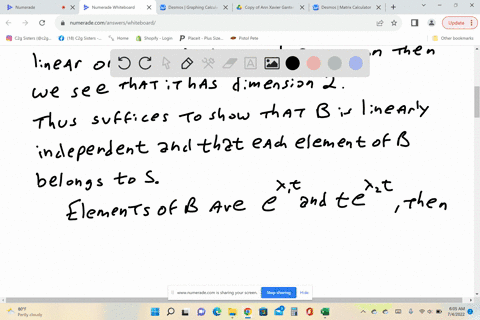 Numerade
Numerade Whiteboard
Desmos | Graphing Calcul
Copy of Ann Xavier Gantz
Desmos | Matrix Calculator
numerade.com/answers/whiteboard/
Update
C2g Sisters (@c2g...
(18) C2g Sisters - Ho...
Home
Shopify - Login
Placeit - Plus Size...
Pokst Pete
linear or
n then
we see that it has dimension 2.
Thus suffices to show that B is linearly
independent and that each element of B
belongs to S.
Elements of B are e^λ₁t and te^λ₂t, then
www.numerade.com is sharing your screen.
Stop sharing
Hide
90°F
Partly cloudy
6:05 AM
7/4/2022